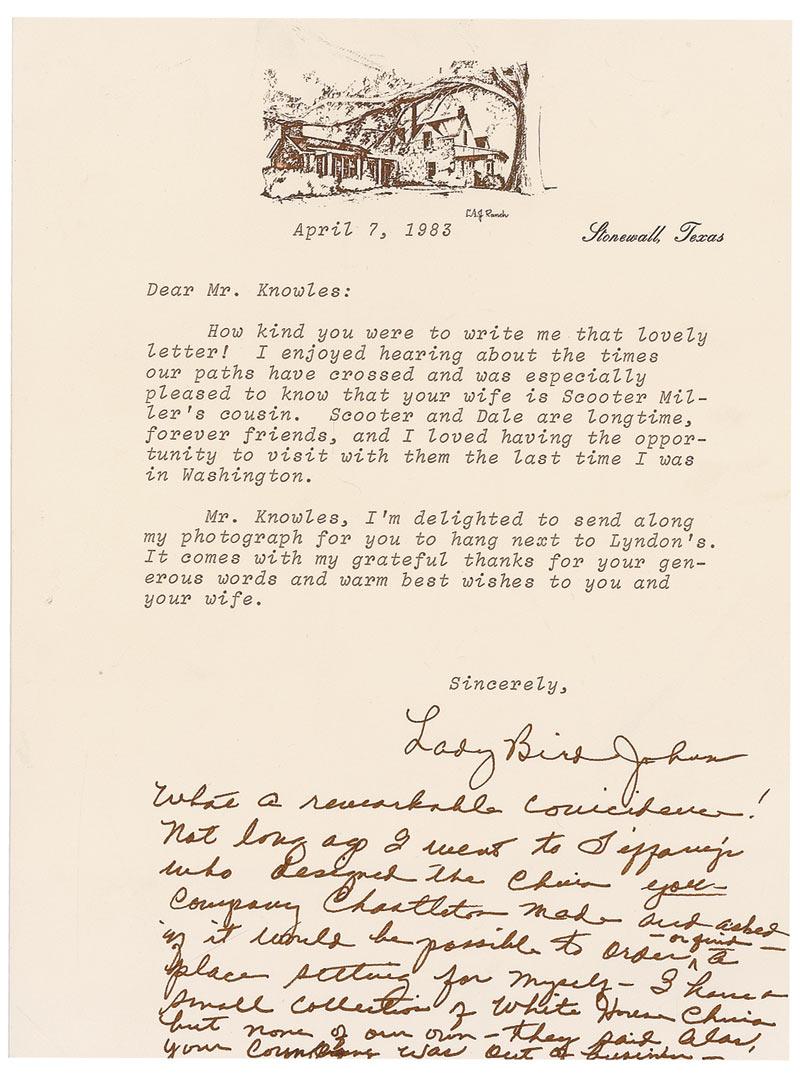 LBJ Ranch
April 7, 1983
Stonewall, Texas
Dear Mr. Knowles:
How kind you were to write me that lovely
letter! I enjoyed hearing about the times
our paths have crossed and was especially
pleased to know that your wife is Scooter Mil-
ler's cousin. Scooter and Dale are longtime,
forever friends, and I loved having the oppor-
tunity to visit with them the last time I was
in Washington.
Mr. Knowles, I'm delighted to send along
my photograph for you to hang next to Lyndon's.
It comes with my grateful thanks for your gen-
erous words and warm best wishes to you and
your wife.
Sincerely,
Lady Bird Johnson
What a remarkable coincidence!
Not long ago I went to Tiffany's
who designed the china your
company Chastleton made and asked
if it would be possible to order, - or find - a
place setting for myself - I have a
small collection of White House China
but none of our own - they said, alas,
your company was out of business -